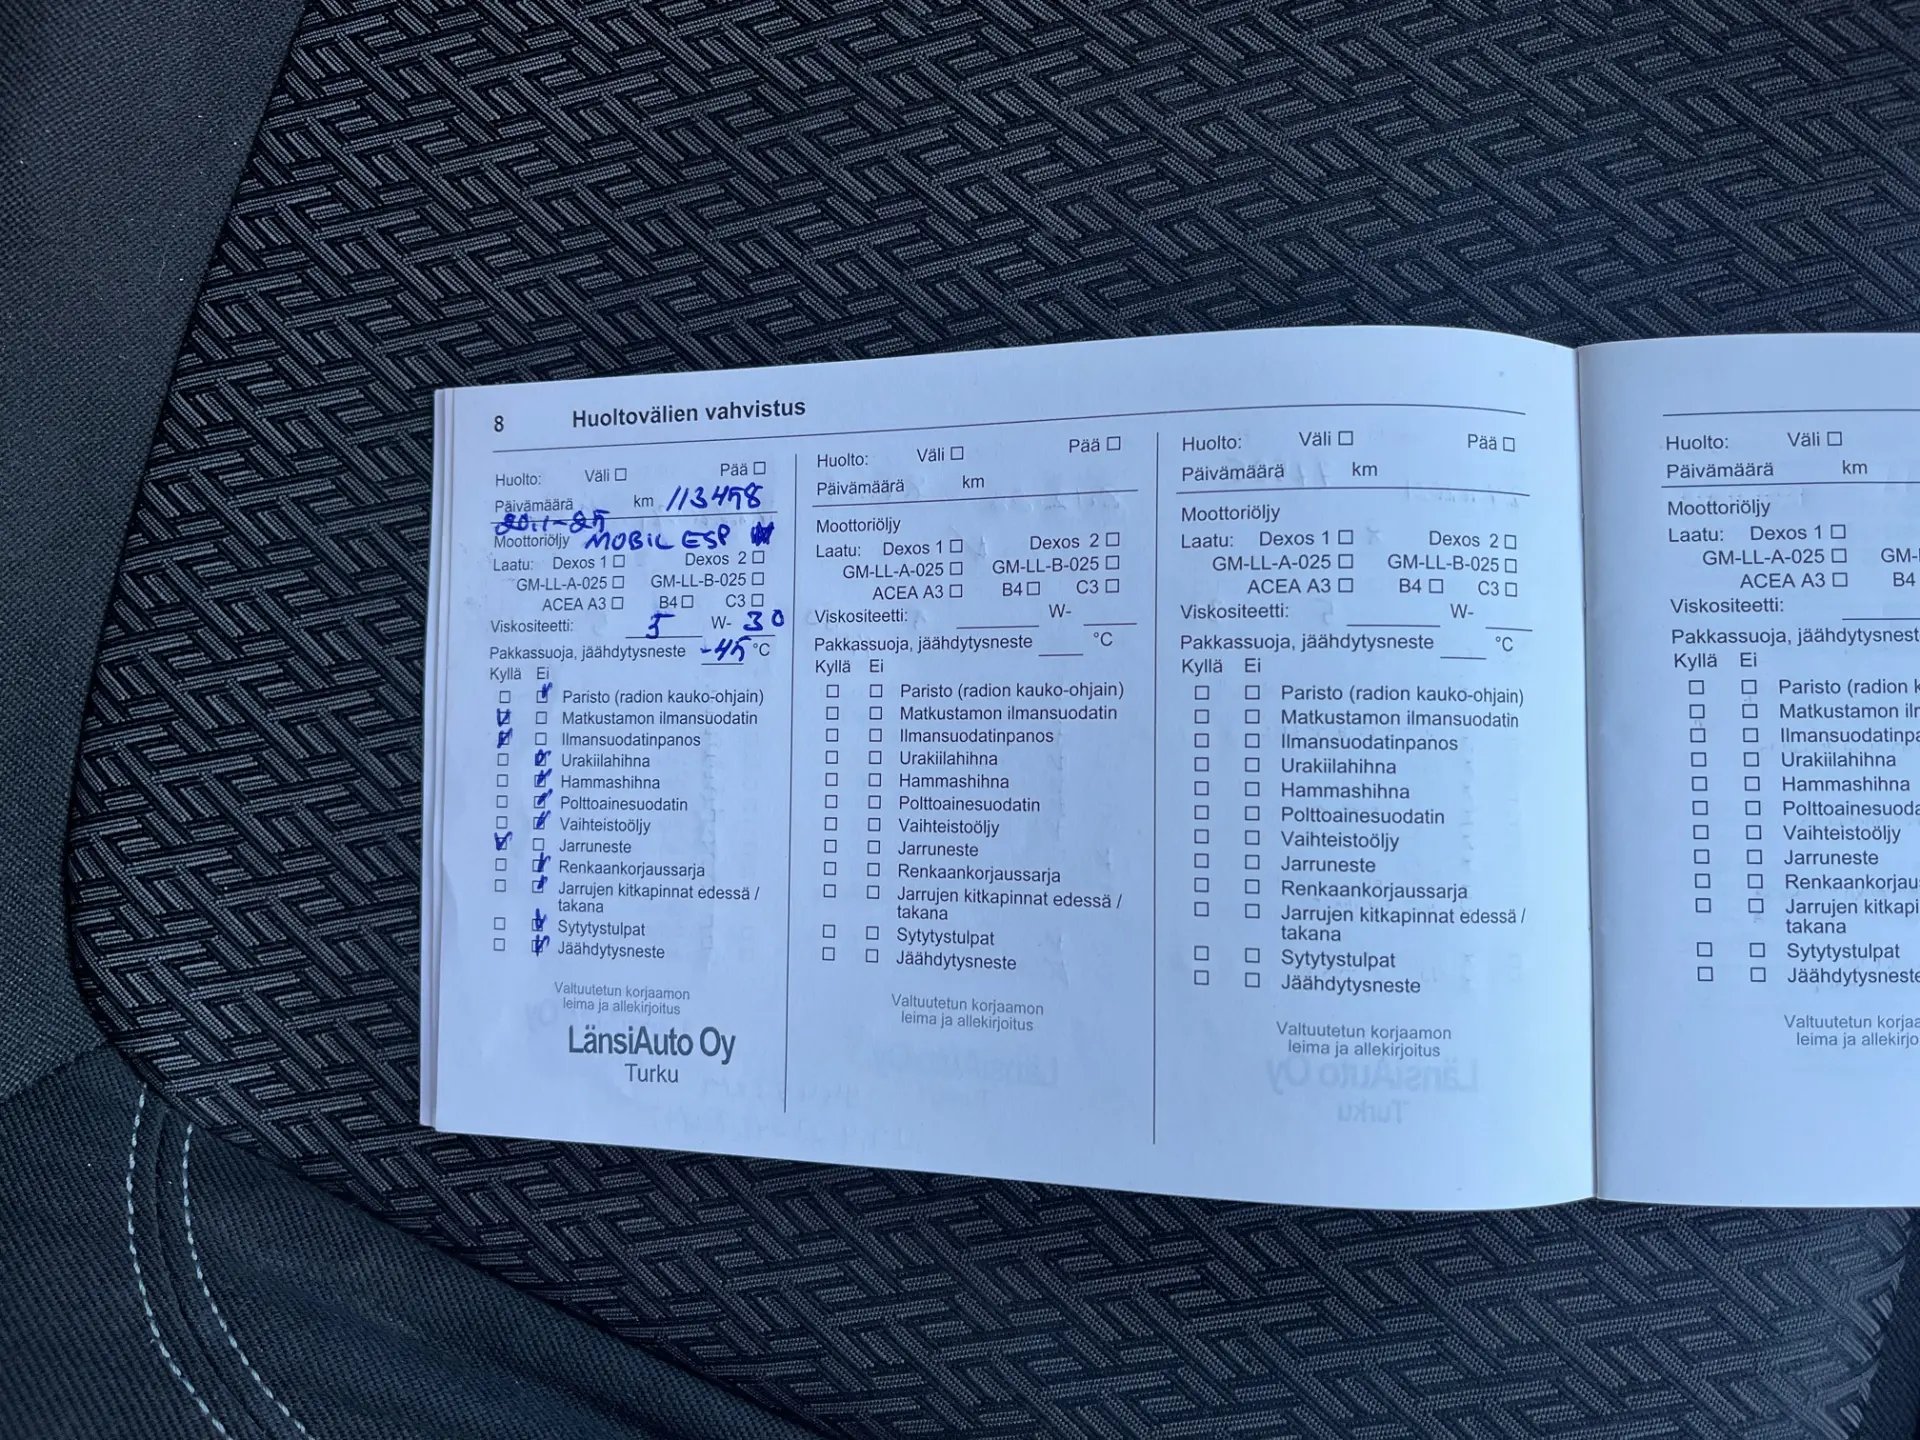 8 Huoltovälien vahvistus
Huolto: Väli Pää
Päivämäärä km 113498
20.1-25
Moottoriöljy MOBIL ESP
Laatu: Dexos 1 Dexos 2
GM-LL-A-025 GM-LL-B-025
ACEA A3 B4 C3
Viskositeetti: 5 W- 30
Pakkassuoja, jäähdytysneste -45 °C
Kyllä Ei
Paristo (radion kauko-ohjain)
Matkustamon ilmansuodatin
Ilmansuodatinpanos
Urakiilahihna
Hammashihna
Polttoainesuodatin
Vaihteistoöljy
Jarruneste
Renkaankorjaussarja
Jarrujen kitkapinnat edessä /
takana
Sytytystulpat
Jäähdytysneste
Valtuutetun korjaamon
leima ja allekirjoitus
LänsiAuto Oy
Turku
Huolto: Väli Pää
Päivämäärä km
Moottoriöljy
Laatu: Dexos 1 Dexos 2
GM-LL-A-025 GM-LL-B-025
ACEA A3 B4 C3
Viskositeetti: W-
Pakkassuoja, jäähdytysneste °C
Kyllä Ei
Paristo (radion kauko-ohjain)
Matkustamon ilmansuodatin
Ilmansuodatinpanos
Urakiilahihna
Hammashihna
Polttoainesuodatin
Vaihteistoöljy
Jarruneste
Renkaankorjaussarja
Jarrujen kitkapinnat edessä /
takana
Sytytystulpat
Jäähdytysneste
Valtuutetun korjaamon
leima ja allekirjoitus
Huolto: Väli Pää
Päivämäärä km
Moottoriöljy
Laatu: Dexos 1 Dexos 2
GM-LL-A-025 GM-LL-B-025
ACEA A3 B4 C3
Viskositeetti: W-
Pakkassuoja, jäähdytysneste °C
Kyllä Ei
Paristo (radion kauko-ohjain)
Matkustamon ilmansuodatin
Ilmansuodatinpanos
Urakiilahihna
Hammashihna
Polttoainesuodatin
Vaihteistoöljy
Jarruneste
Renkaankorjaussarja
Jarrujen kitkapinnat edessä /
takana
Sytytystulpat
Jäähdytysneste
Valtuutetun korjaamon
leima ja allekirjoitus
Huolto: Väli
Päivämäärä km
Moottoriöljy
Laatu: Dexos 1
GM-LL-A-025 GM-
ACEA A3 B4
Viskositeetti:
Pakkassuoja, jäähdytysnest
Kyllä Ei
Paristo (radion k
Matkustamon ilm
Ilmansuodatinpa
Urakiilahihna
Hammashihna
Polttoainesuoda
Vaihteistoöljy
Jarruneste
Renkaankorjaus
Jarrujen kitkapi
takana
Sytytystulpat
Jäähdytysneste
Valtuutetun korjaa
leima ja allekirjo